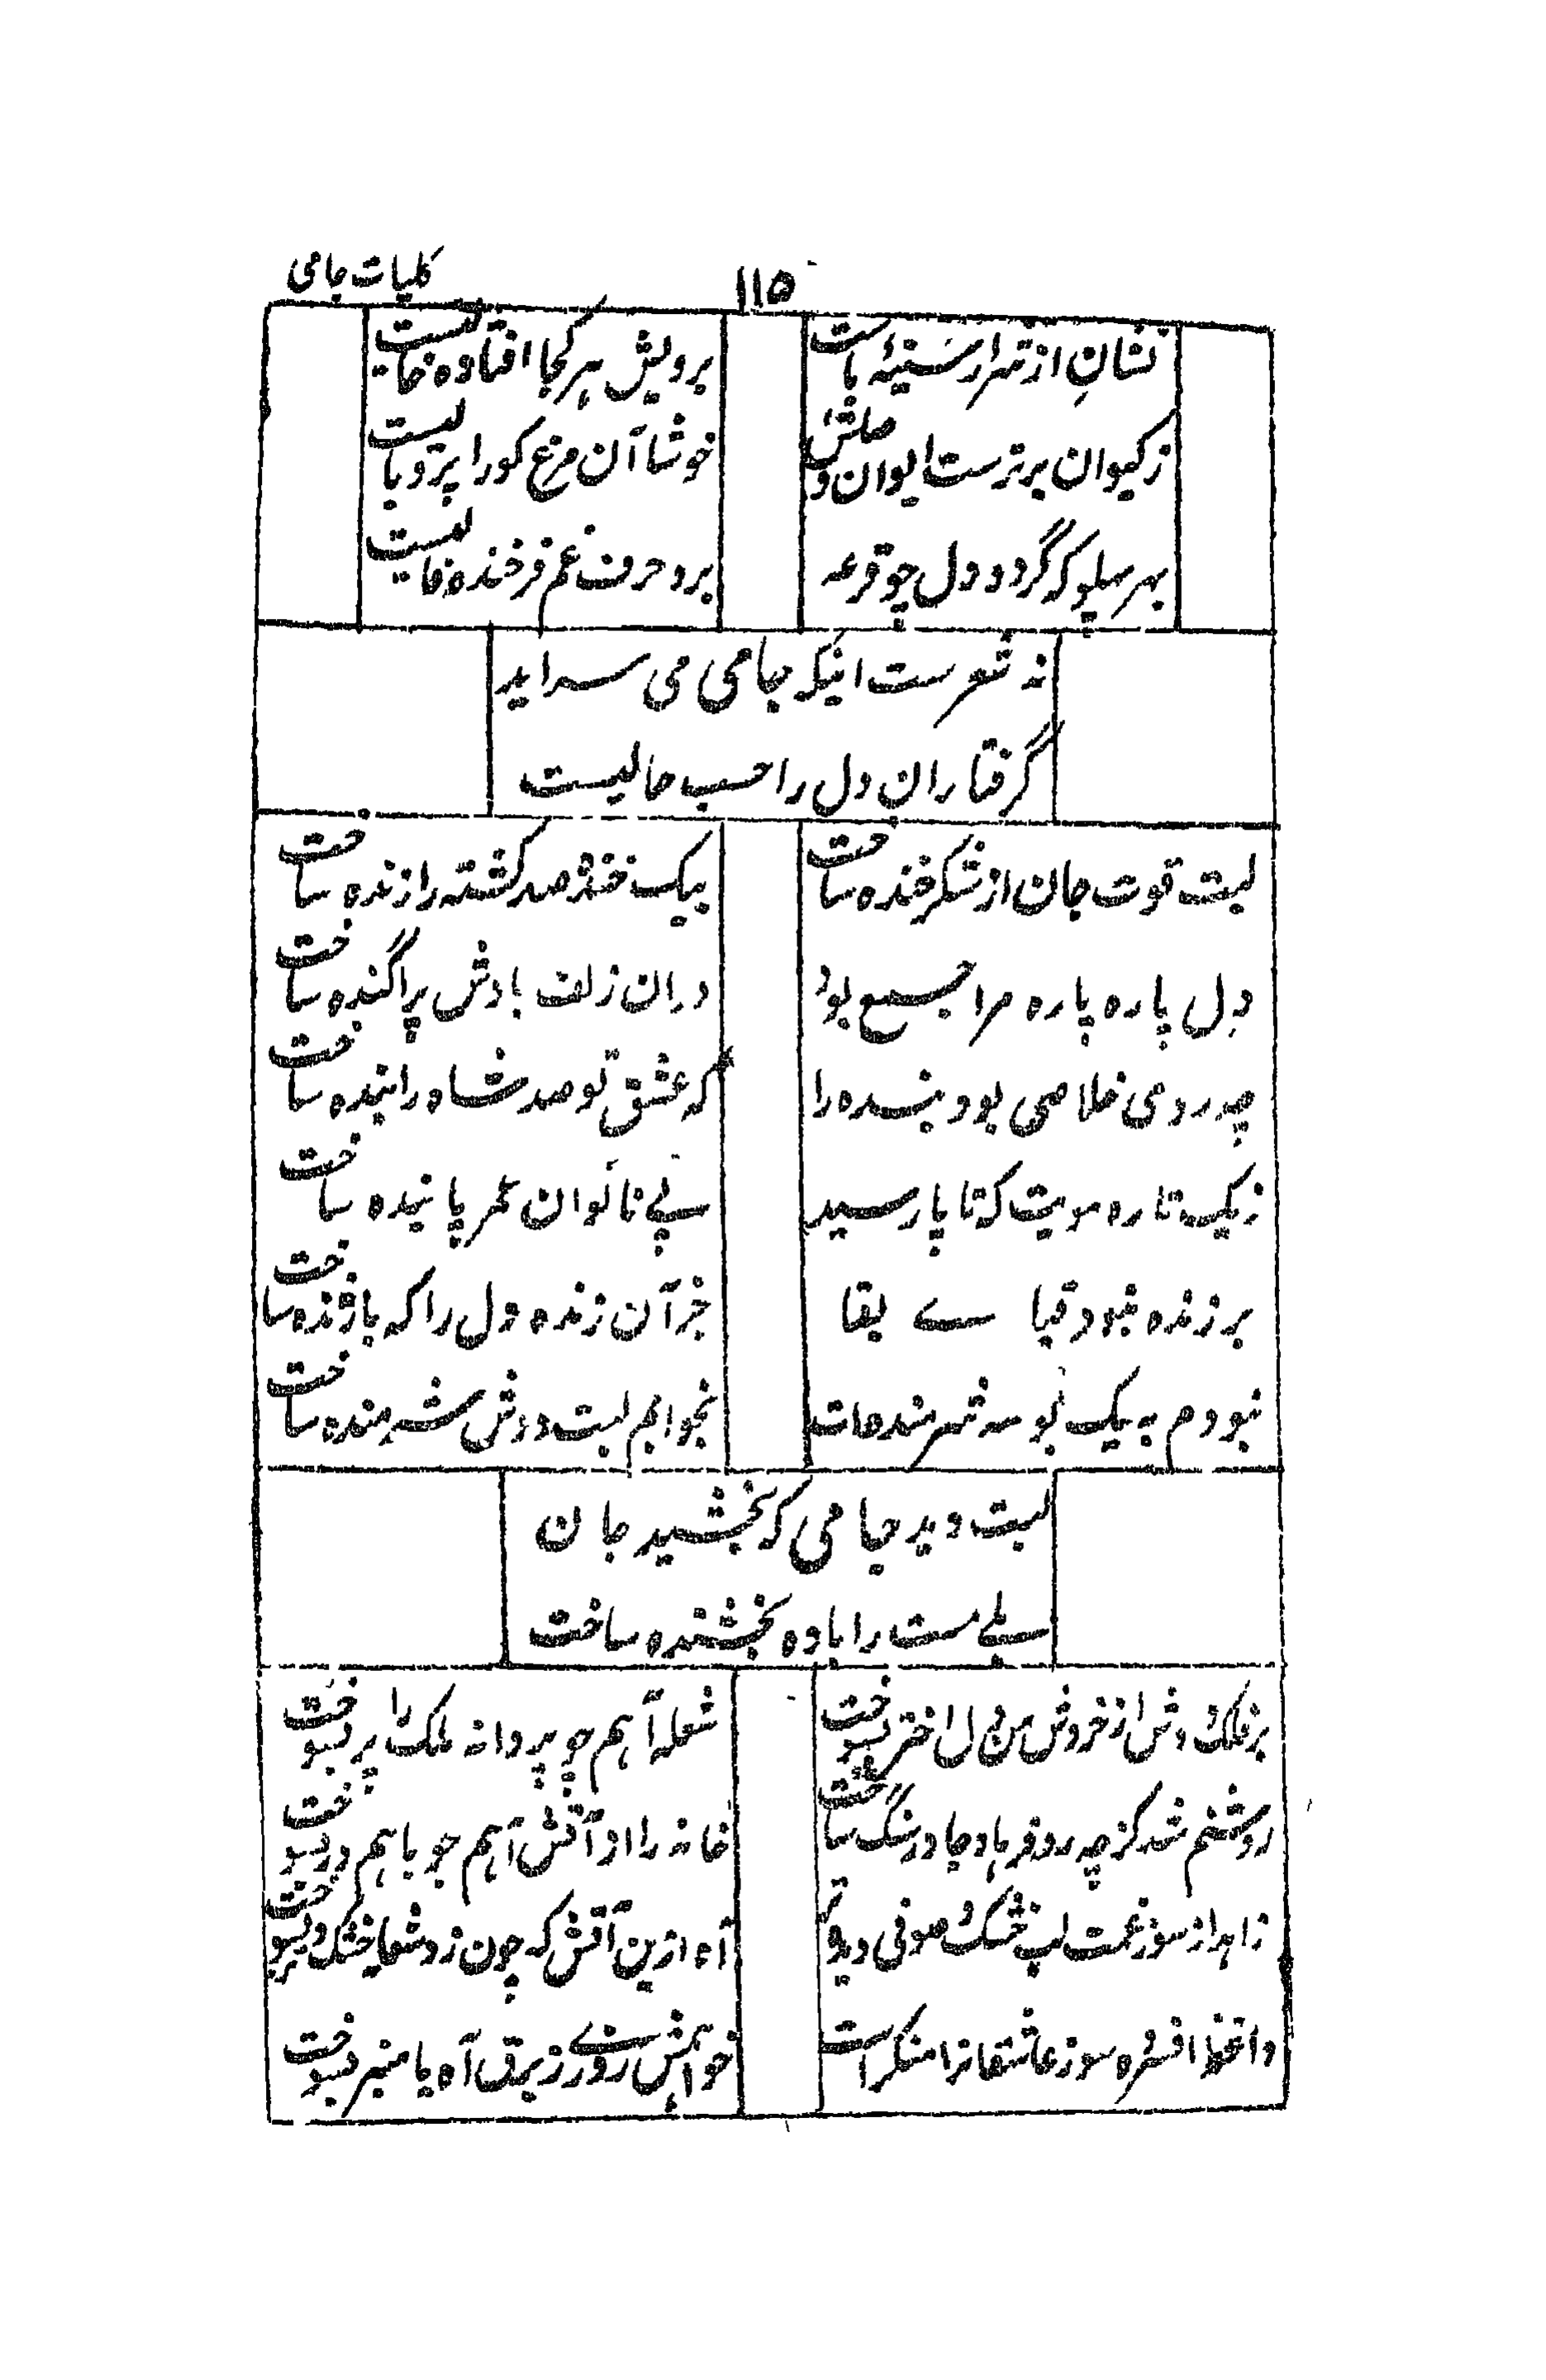 ۱۱۵
کلیات جامی
نشانِ از شرارِ سینۂ ماست
برویش هر کجا افتاده خالیست
ز کیوان برترست ایوان وصلش
خوشا آن مرغ کو را پر و بالیست
بهر پهلو که گردد دل چو قرعه
برو حرف غم فرخنده فالیست
نه شعرست اینکه جامی می سراید
گرفتاران دل را حسب حالیست
لبت قوت جان از شکر خنده ساخت
بیک خنده صد کشته را زنده ساخت
دل پاره پاره مرا جمع بود
دران زلف بادش پراگنده ساخت
چه روی خلاصی بود بنده را
که عشق تو صد شاه را بنده ساخت
ز یک تاره مویت که تا پا رسید
پے ناتوان عمر پاینده ساخت
بر زنده نبود قباے بقا
جز آن زنده دل را که با ژنده ساخت
نبودم به یک بوسه شرمنده ات
بخوابم لبت دوش شرمنده ساخت
لبت دید جامی که بخشید جان
بلے مست را باده بخشنده ساخت
بر فلک دوش از خروش من دل اختر بسوخت
شعله آهم چو پروانه ملک را پر بسوخت
روشنم شد کز چه رو فرهاد جا در سنگ ساخت
خانه را از آتش آهم چو بام و در بسوخت
زاهد از سوز غمت لب خشک و صوفی دیده تر
آه ازین آتش که چون زد شعله خشک و تر بسوخت
واعظ افسرده سوز عاشقانرا منکر است
خواهمش روزے ز برق آه با منبر بسوخت